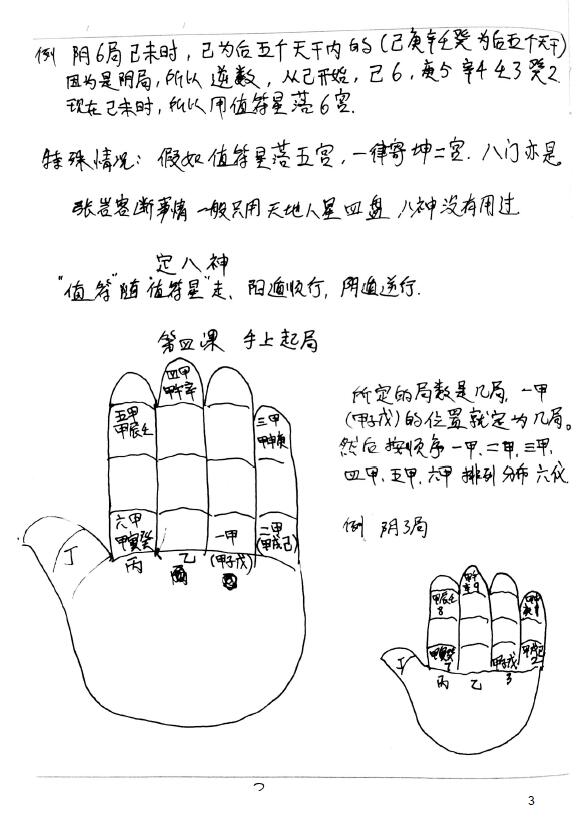 例 阴6局己未时，己为后五个天干内的(己庚辛壬癸为后五个天干)
因为是阴局，所以逆数，从己开始，己6，庚5 辛4 壬3 癸2
现在己未时，所以用值符星落6宫.
特殊情况：假如值符星落五宫，一律寄坤二宫. 八门亦是
张岩客断事情一般只用天地人星四盘 八神没有用过
定八神
"值符"随"值符星"走、阳遁顺行，阴遁逆行.
第四课 手上起局
四甲
甲午辛
五甲
甲辰壬
三甲
甲申庚
六甲
甲寅癸
一甲
(甲子戊)
二甲
(甲戌己)
丁
丙
乙
所定的局数是几局，一甲
(甲子戊)的位置就定为几局。
然后按顺序一甲、二甲、三甲、
四甲、五甲、六甲 排列分布六仪
例 阴3局
甲午
辛9
甲辰壬
8
甲申
庚1
甲寅癸
7
甲子戊
3
甲戌己
2
丁
丙
乙
3